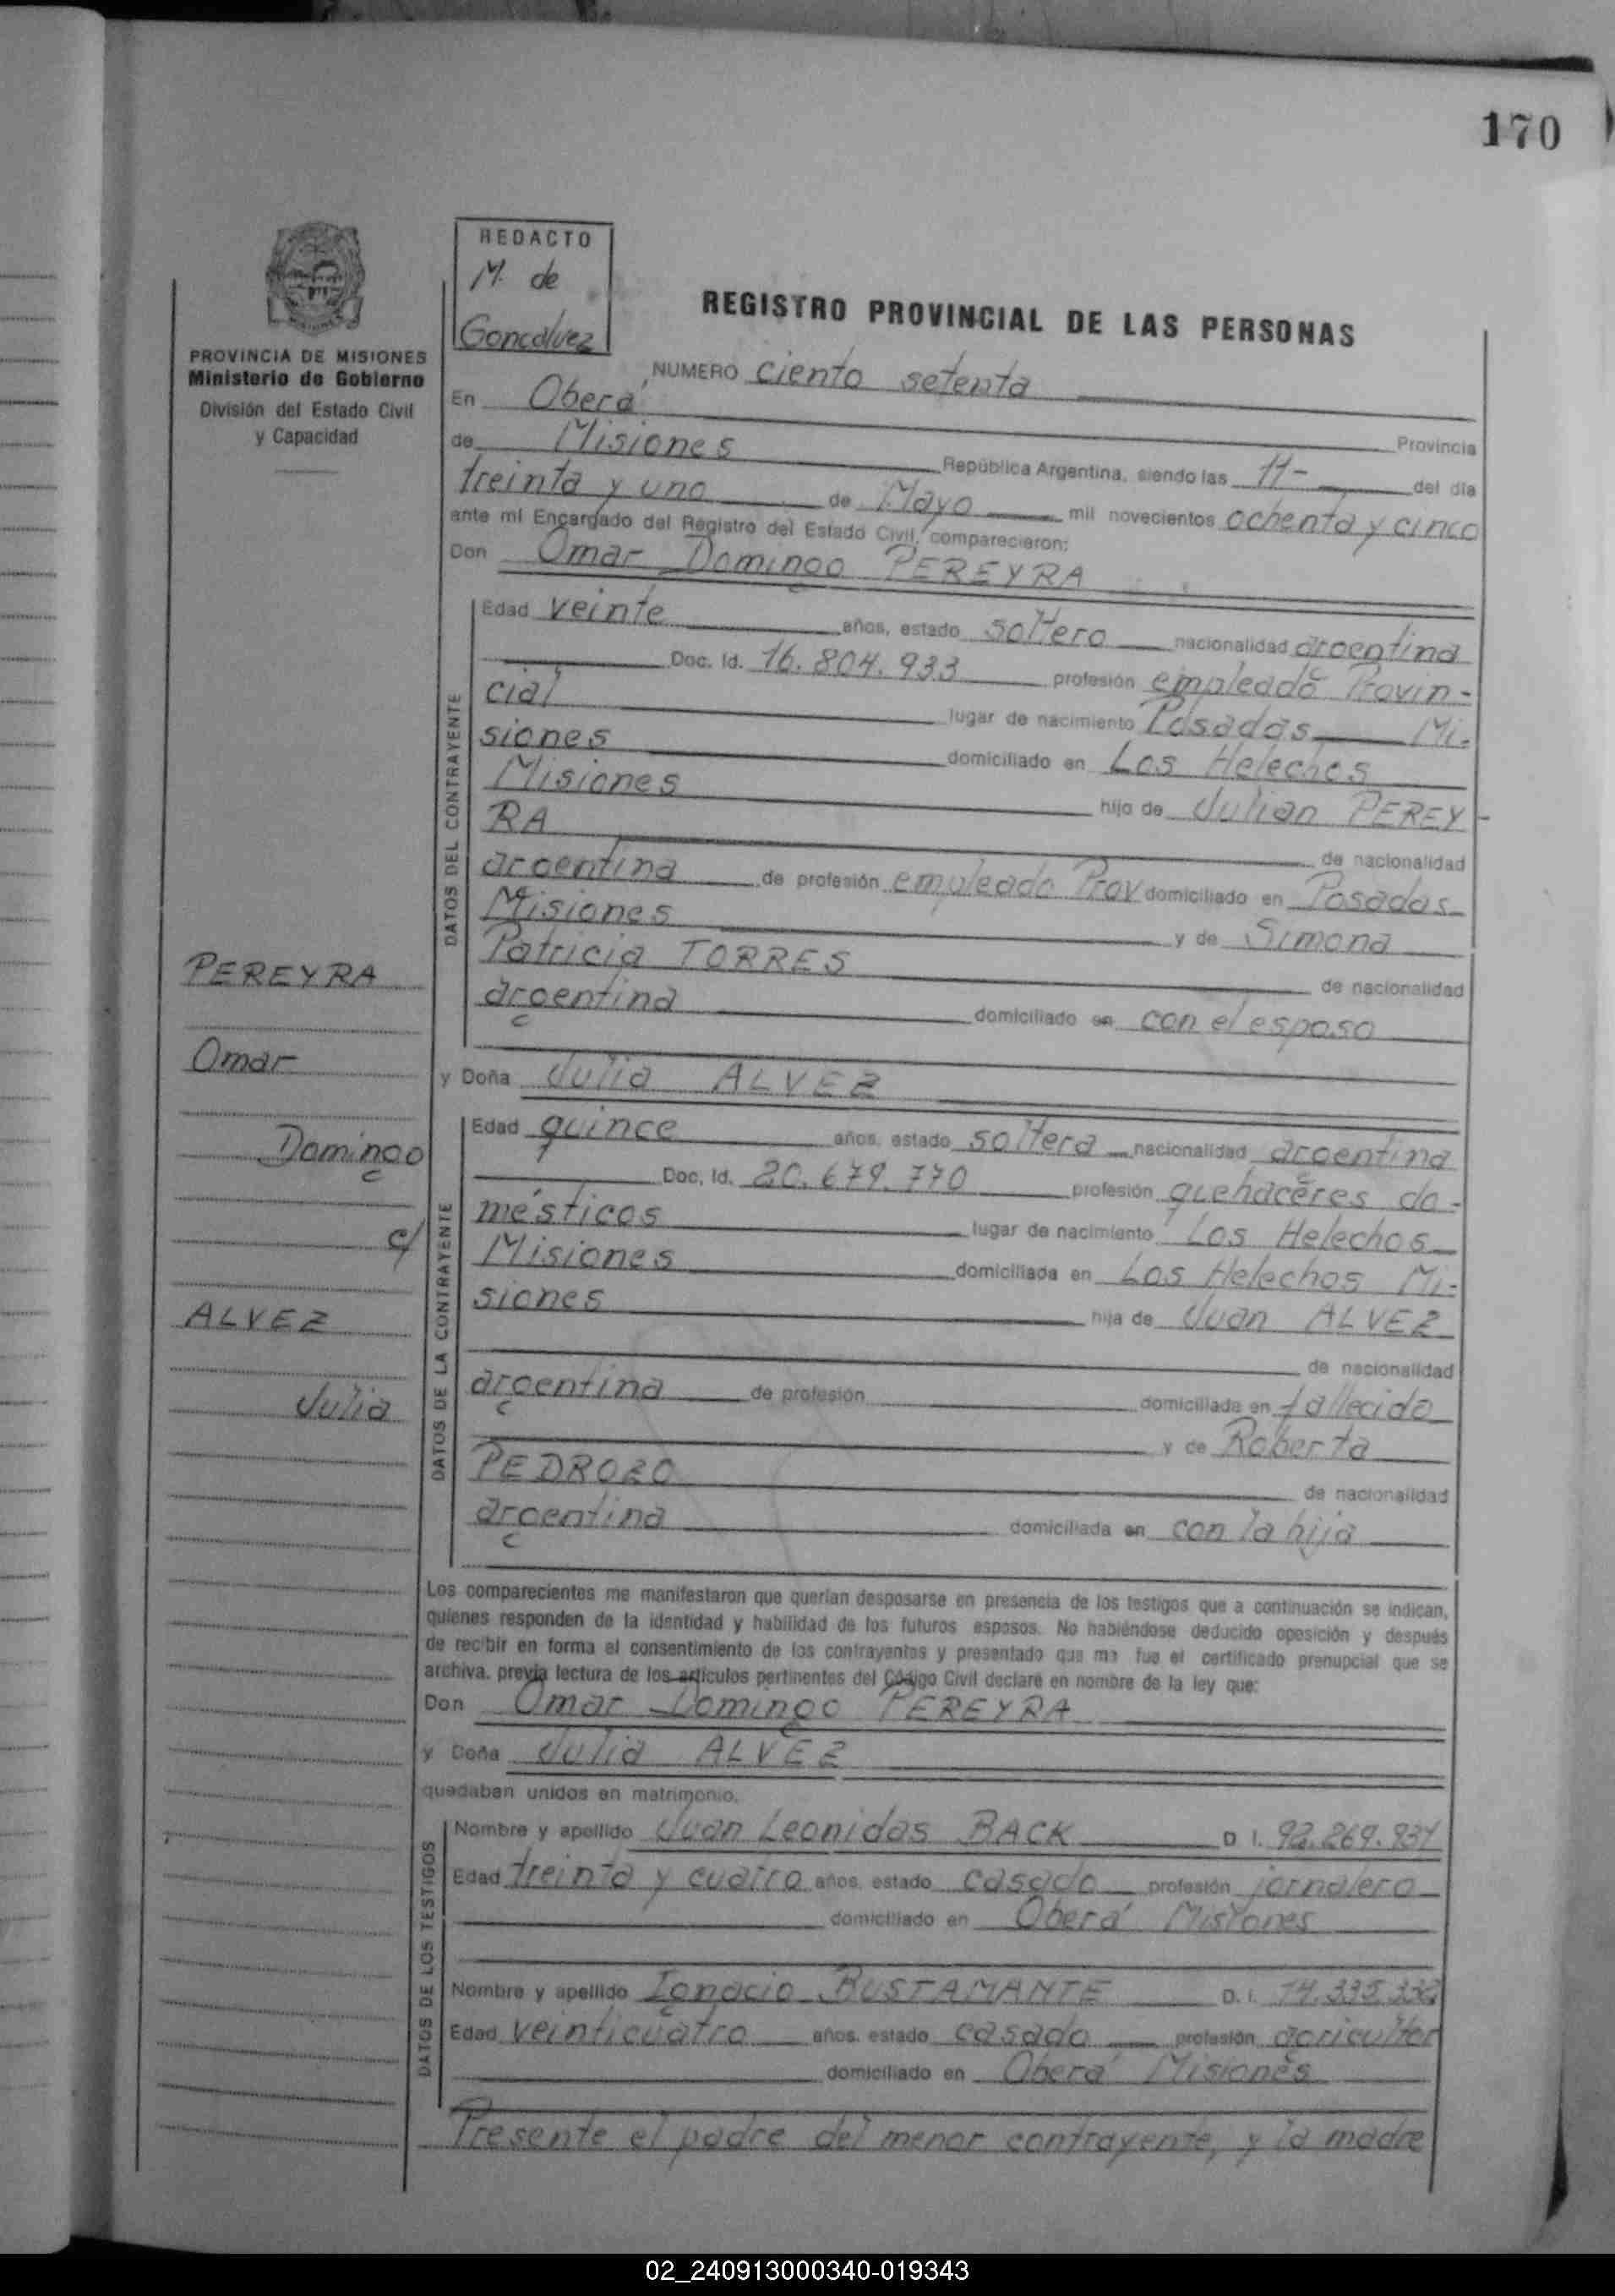 170
REDACTO
M. de
Goncalvez
PROVINCIA DE MISIONES
Ministerio de Gobierno
División del Estado Civil
y Capacidad
REGISTRO PROVINCIAL DE LAS PERSONAS
NUMERO ciento setenta
En Oberá
Provincia
de Misiones República Argentina, siendo las 11- del día
treinta y uno de Mayo mil novecientos ochenta y cinco
ante mí Encargado del Registro del Estado Civil, comparecieron:
Don Omar Domingo PEREYRA
DATOS DEL CONTRAYENTE
Edad veinte años, estado soltero nacionalidad argentina
Doc. Id. 16.804.933 profesión empleado Provin-
cial lugar de nacimiento Posadas Mi-
siones domiciliado en Los Helechos
Misiones hijo de Julian PEREY-
RA de nacionalidad
argentina de profesión empleado Prov domiciliado en Posadas
Misiones y de Simona
Patricia TORRES de nacionalidad
argentina domiciliado en con el esposo
y Doña Julia ALVEZ
DATOS DE LA CONTRAYENTE
Edad quince años, estado soltera nacionalidad argentina
Doc. Id. 20.679.770 profesión quehaceres do-
mésticos lugar de nacimiento Los Helechos
Misiones domiciliada en Los Helechos Mi-
siones hija de Juan ALVEZ
de nacionalidad
argentina de profesión domiciliada en fallecido
y de Roberta
PEDROZO de nacionalidad
argentina domiciliada en con la hija
PEREYRA
Omar
Domingo
c/
ALVEZ
Julia
Los comparecientes me manifestaron que querían desposarse en presencia de los testigos que a continuación se indican,
quienes responden de la identidad y habilidad de los futuros esposos. No habiéndose deducido oposición y después
de recibir en forma el consentimiento de los contrayentes y presentado que me fue el certificado prenupcial que se
archiva. previa lectura de los artículos pertinentes del Código Civil declaré en nombre de la ley que:
Don Omar Domingo PEREYRA
y Doña Julia ALVEZ
quedaban unidos en matrimonio.
DATOS DE LOS TESTIGOS
Nombre y apellido Juan Leonidas BACK D I. 92.269.931
Edad treinta y cuatro años, estado casado profesión jornalero
domiciliado en Oberá Misiones
Nombre y apellido Ignacio BUSTAMANTE D. I.
Edad veinticuatro años. estado casado profesión agricultor
domiciliado en Oberá Misiones
Presente el padre del menor contrayente, y la madre
02_240913000340-019343